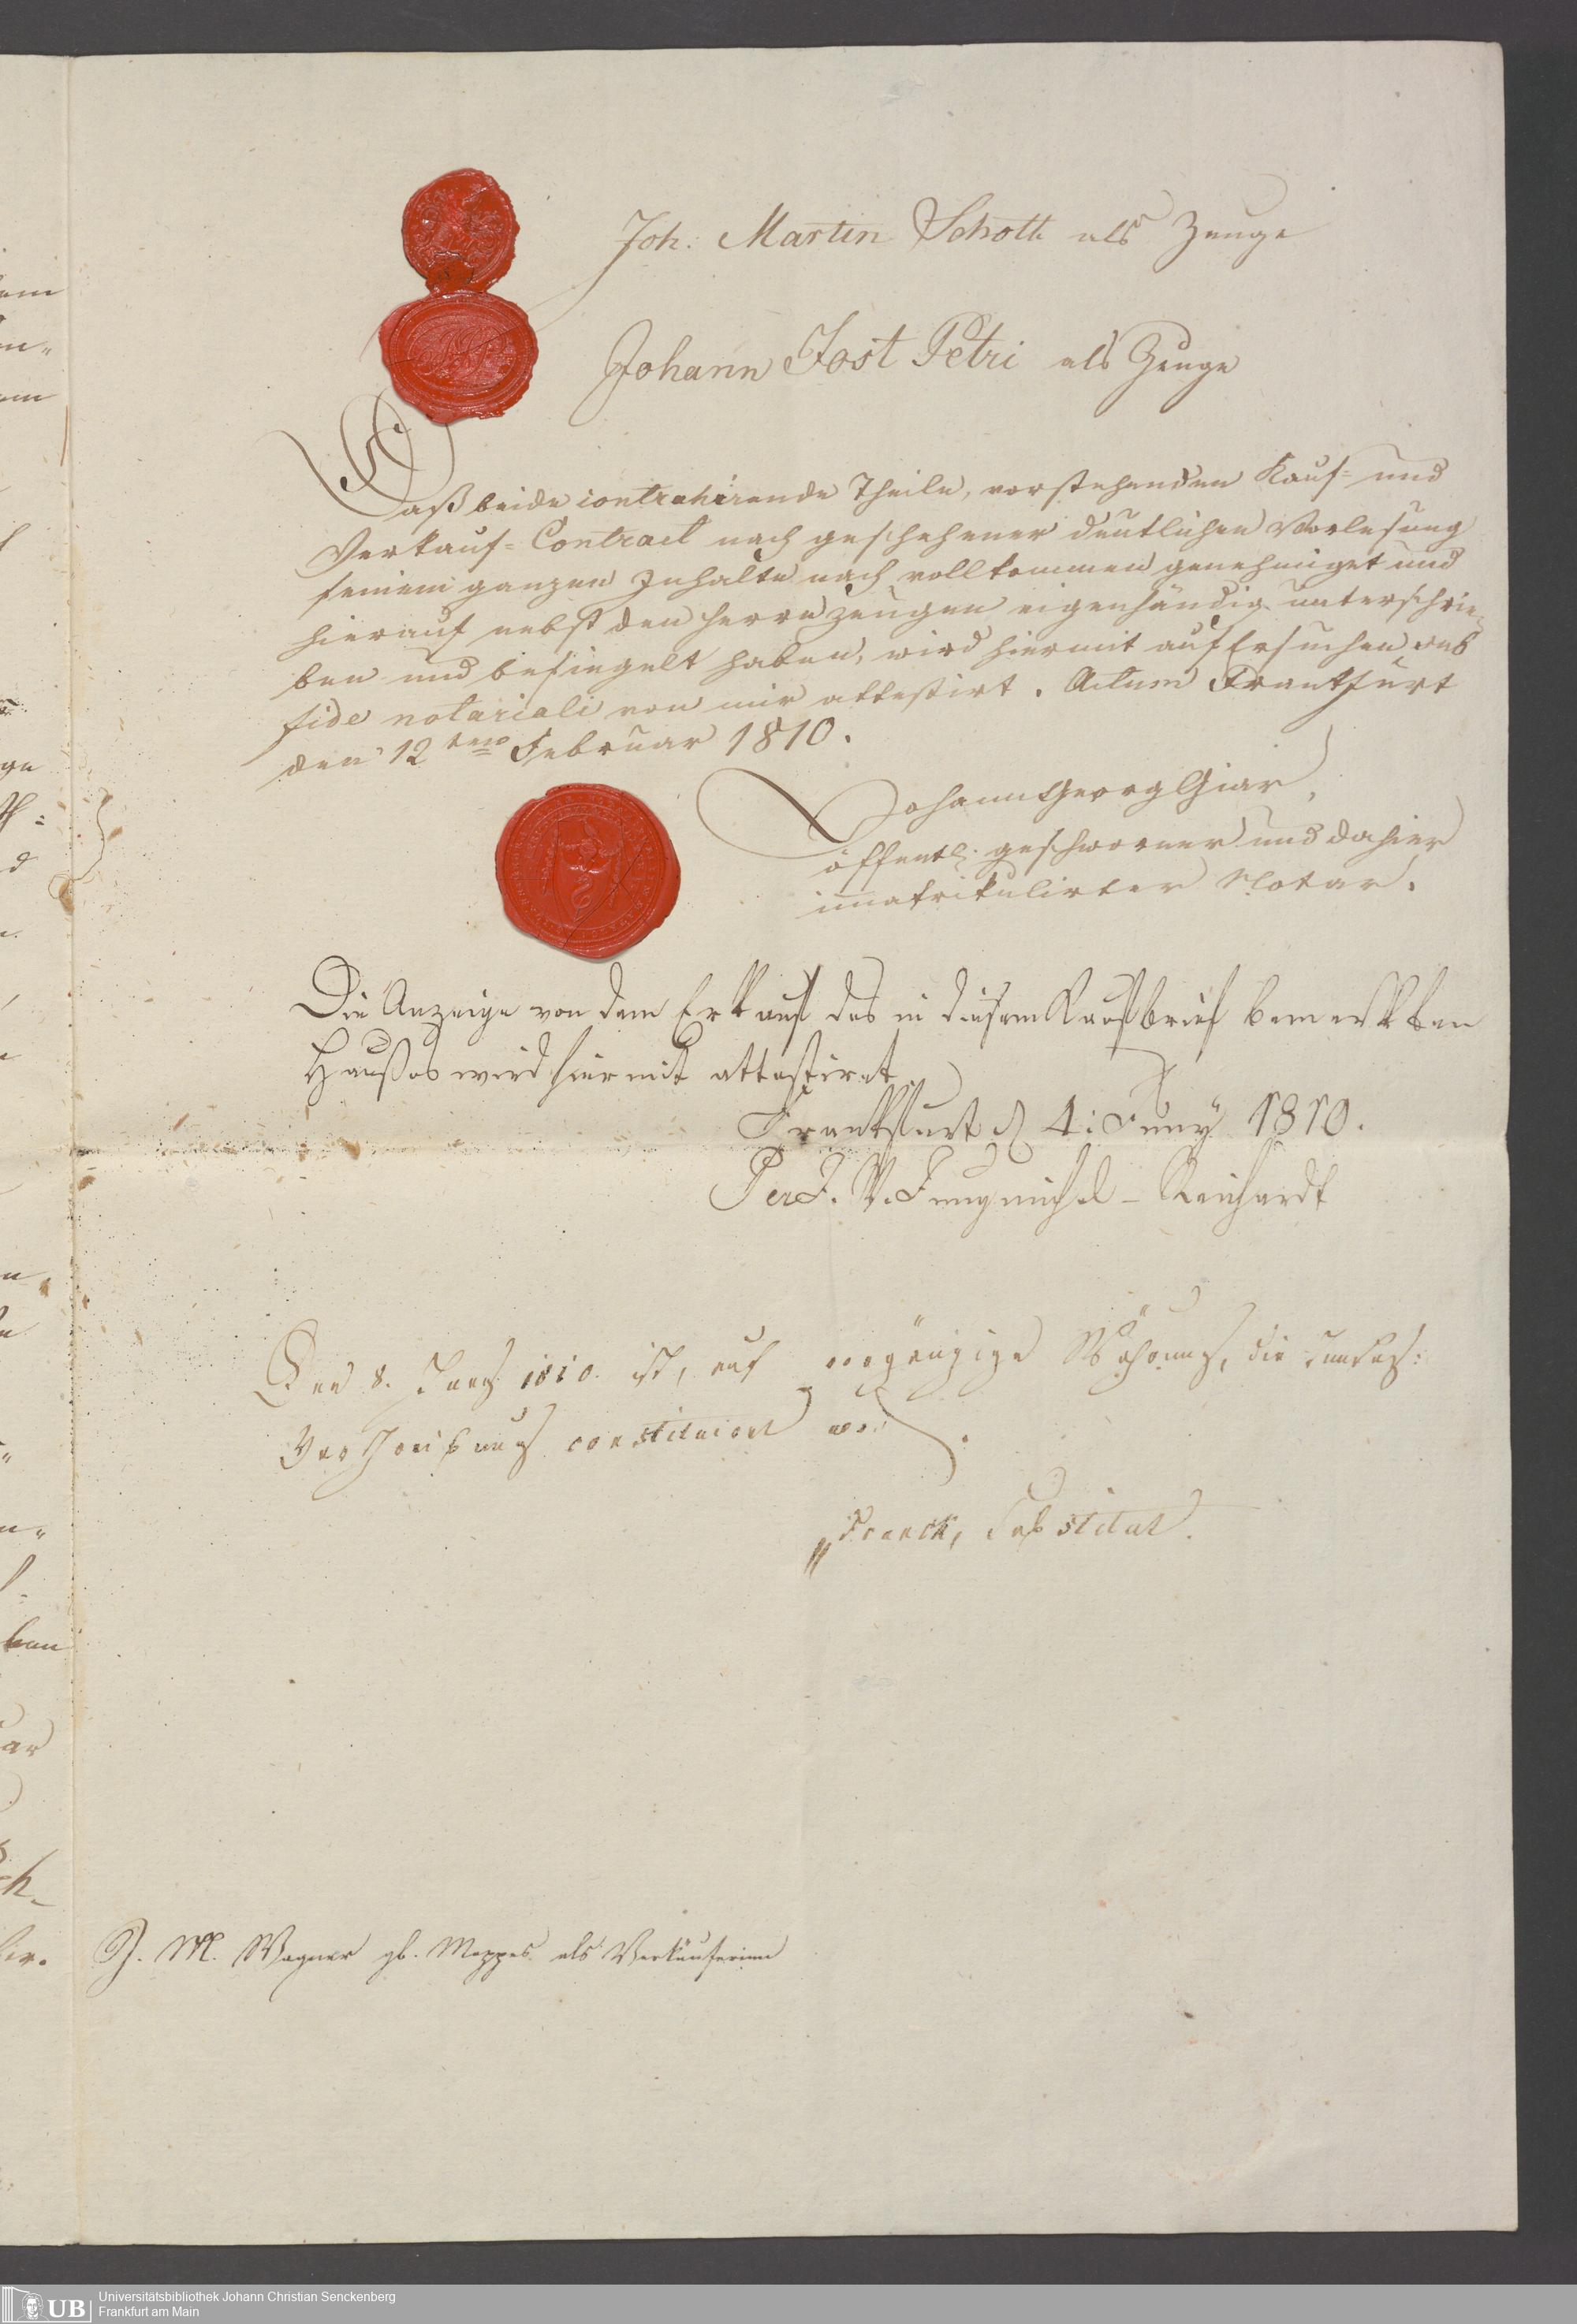 Joh. Martin Schott als Zeuge
Johann Jost Petri als Zeuge
Daß beide contrahirende Theile, vorstehenden Kauf= und
Verkauf=Contract nach geschehener deutlichen Vorlesung
seinem ganzen Inhalte nach vollkommen genehmiget und
hierauf nebst den Herrn Zeugen eigenhändig unterschrie=
ben und besiegelt haben, wird hiermit auf Ersuchen sub
fide notariali von mir attestirt. Actum Frankfurt
den 12ten Februar 1810.
Johann Georg Giar,
öffentl. geschworner und dahier
immatrikulirter Notar.
Die Anzeige von dem Erkauf des in diesem Kaufbrief bemerkten
Haußes wird hiermit attestiret
Frankfurt d 4: Juny 1810.
Jungmichel - Reinhardt
Den 8. Juny 1810. ist, auf vorgängige die
constituiret
Franck, Substitut.
J. M. Wagner gb. Mappes als Verkäuferinn
Universitätsbibliothek Johann Christian Senckenberg
Frankfurt am Main
UB